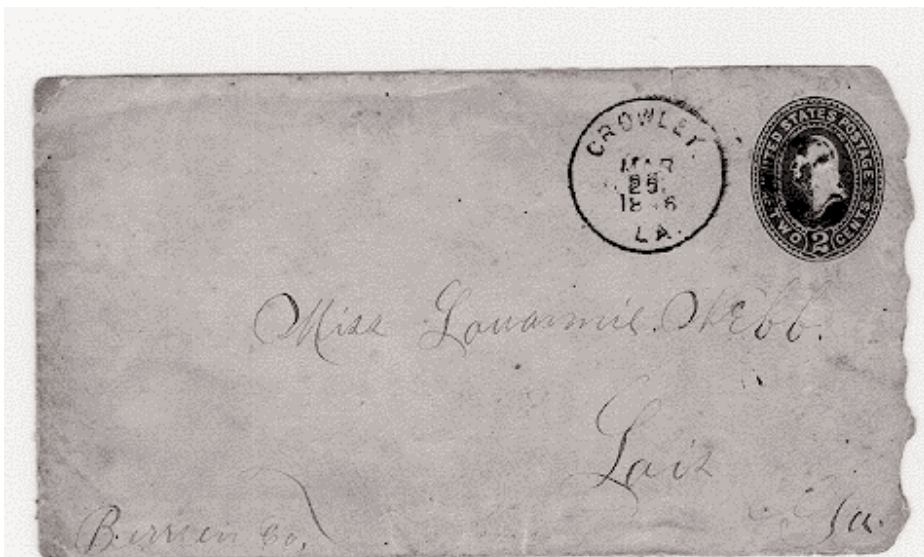 CROWLEY
MAR
25
LA.
UNITED STATES POSTAGE
TWO 2 CENTS
Miss Louannie Webb.
Lois
Berrien Co. Ga.